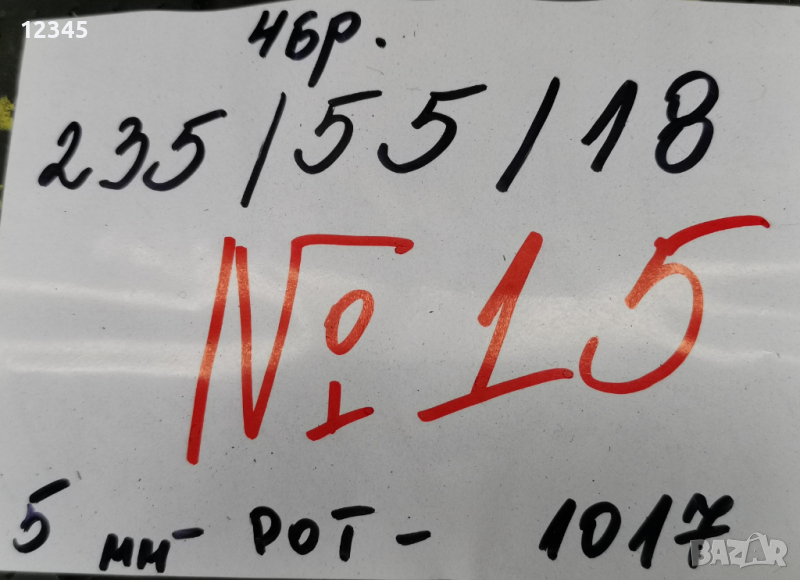 12345
4бр.
235/55/18
№15
5 мм DOT - 1017
BAZAR